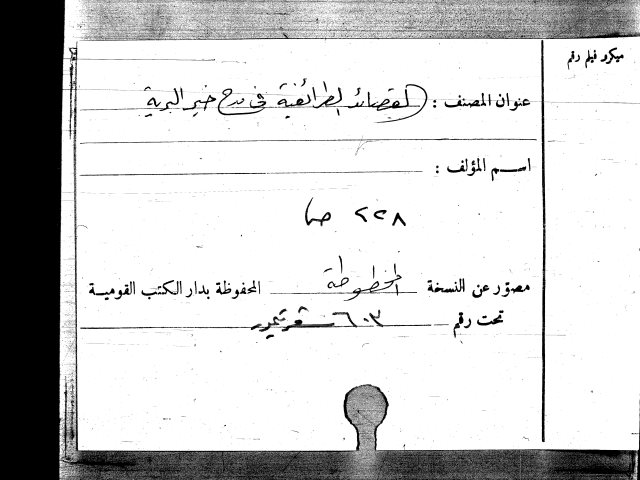 ميكرو فيلم رقم
عنوان المصنف : القصائد الطرائفية فى مدح خير البرية
اســم المؤلف :
٢٢٨
مصوّر عن النسخة المخطوطة المحفوظة بدار الكتب القوميـة
تحت رقم ٦٠٣ شعر تيمور